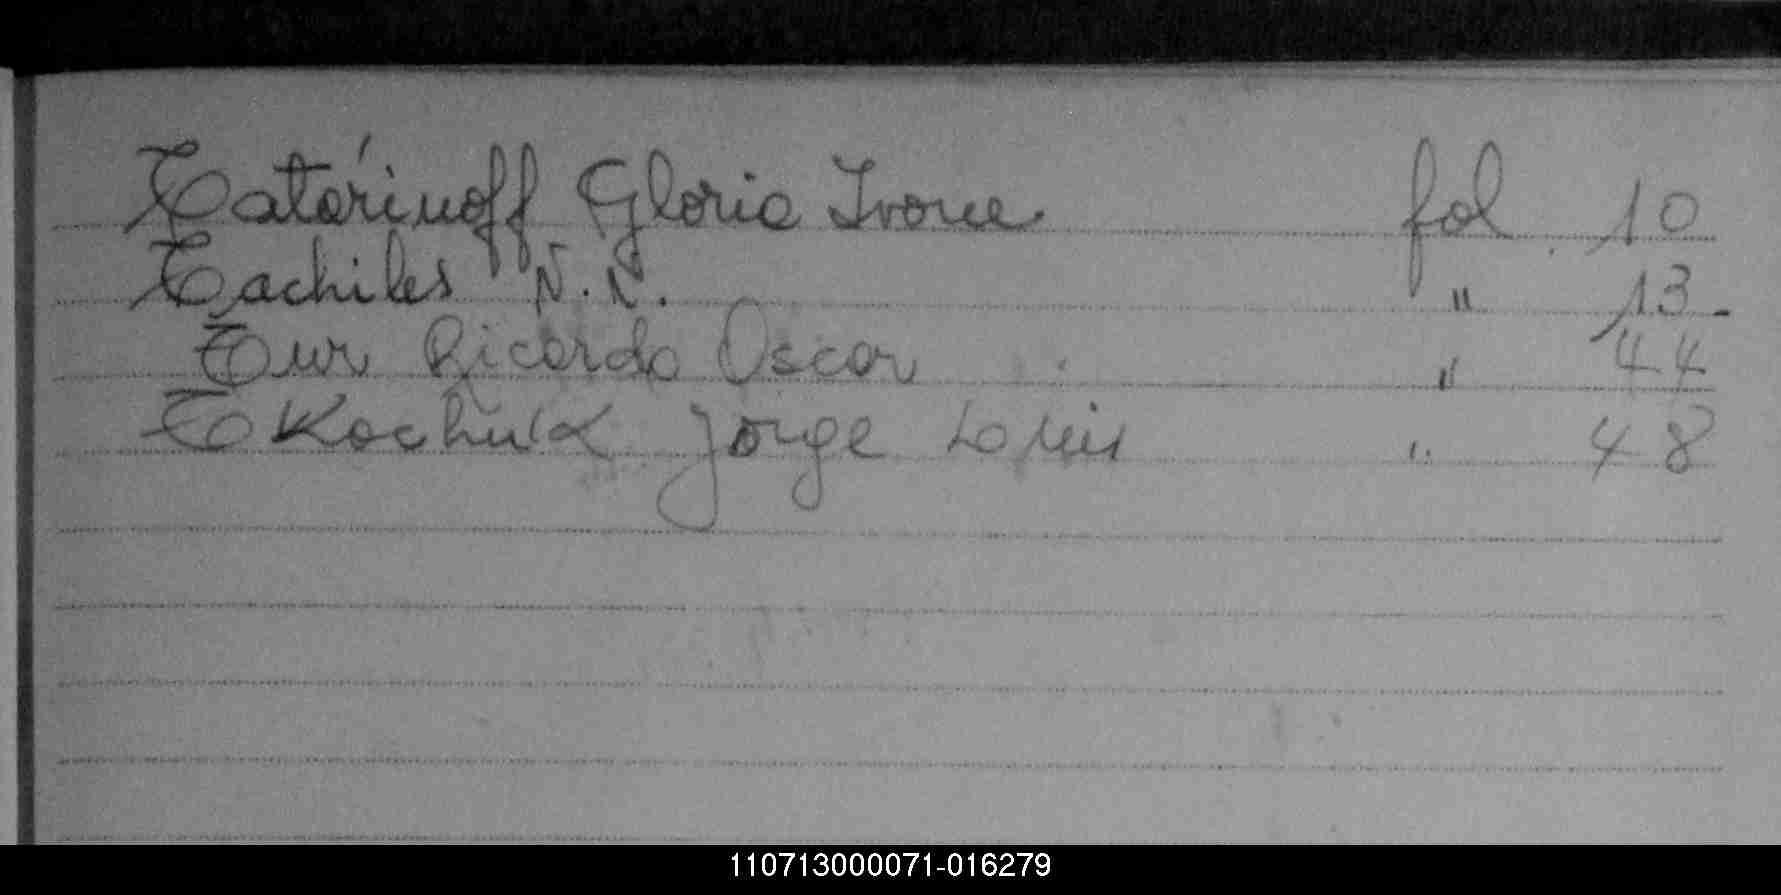 Tatárinoff Gloria Ivone fol. 10
Tachiles N.N. " 13-
Tur Ricardo Oscar " 44
TKachuk Jorge Luis " 48
110713000071-016279